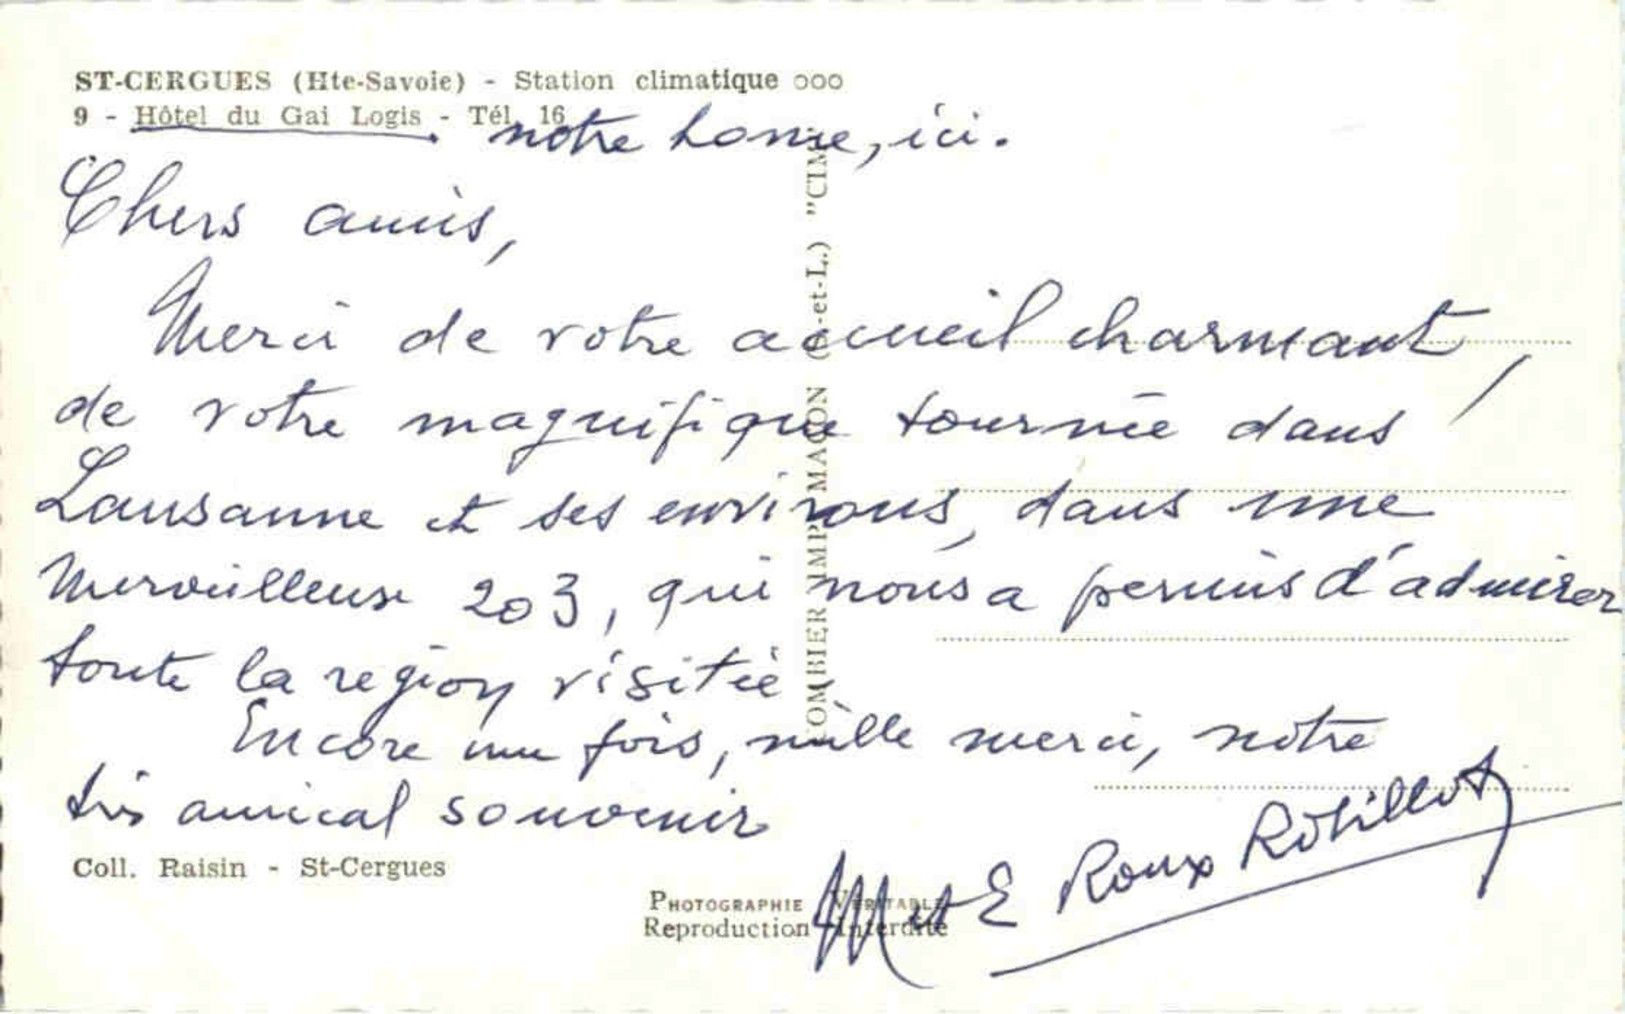 ST-CERGUES (Hte-Savoie) - Station climatique ooo
9 - Hôtel du Gai Logis - Tél. 16
notre home, ici.
Chers amis,
Merci de votre accueil charmant,
de votre magnifique tournée dans
Lausanne et ses environs, dans une
merveilleuse 203, qui nous a permis d'admirer
toute la région visitée.
Encore une fois, mille merci, notre
très amical souvenir
M et E Roux Robillot
Coll. Raisin - St-Cergues
PHOTOGRAPHIE VÉRITABLE
Reproduction Interdite
COMBIER IMP. MACON (S.-et-L.) "CIM